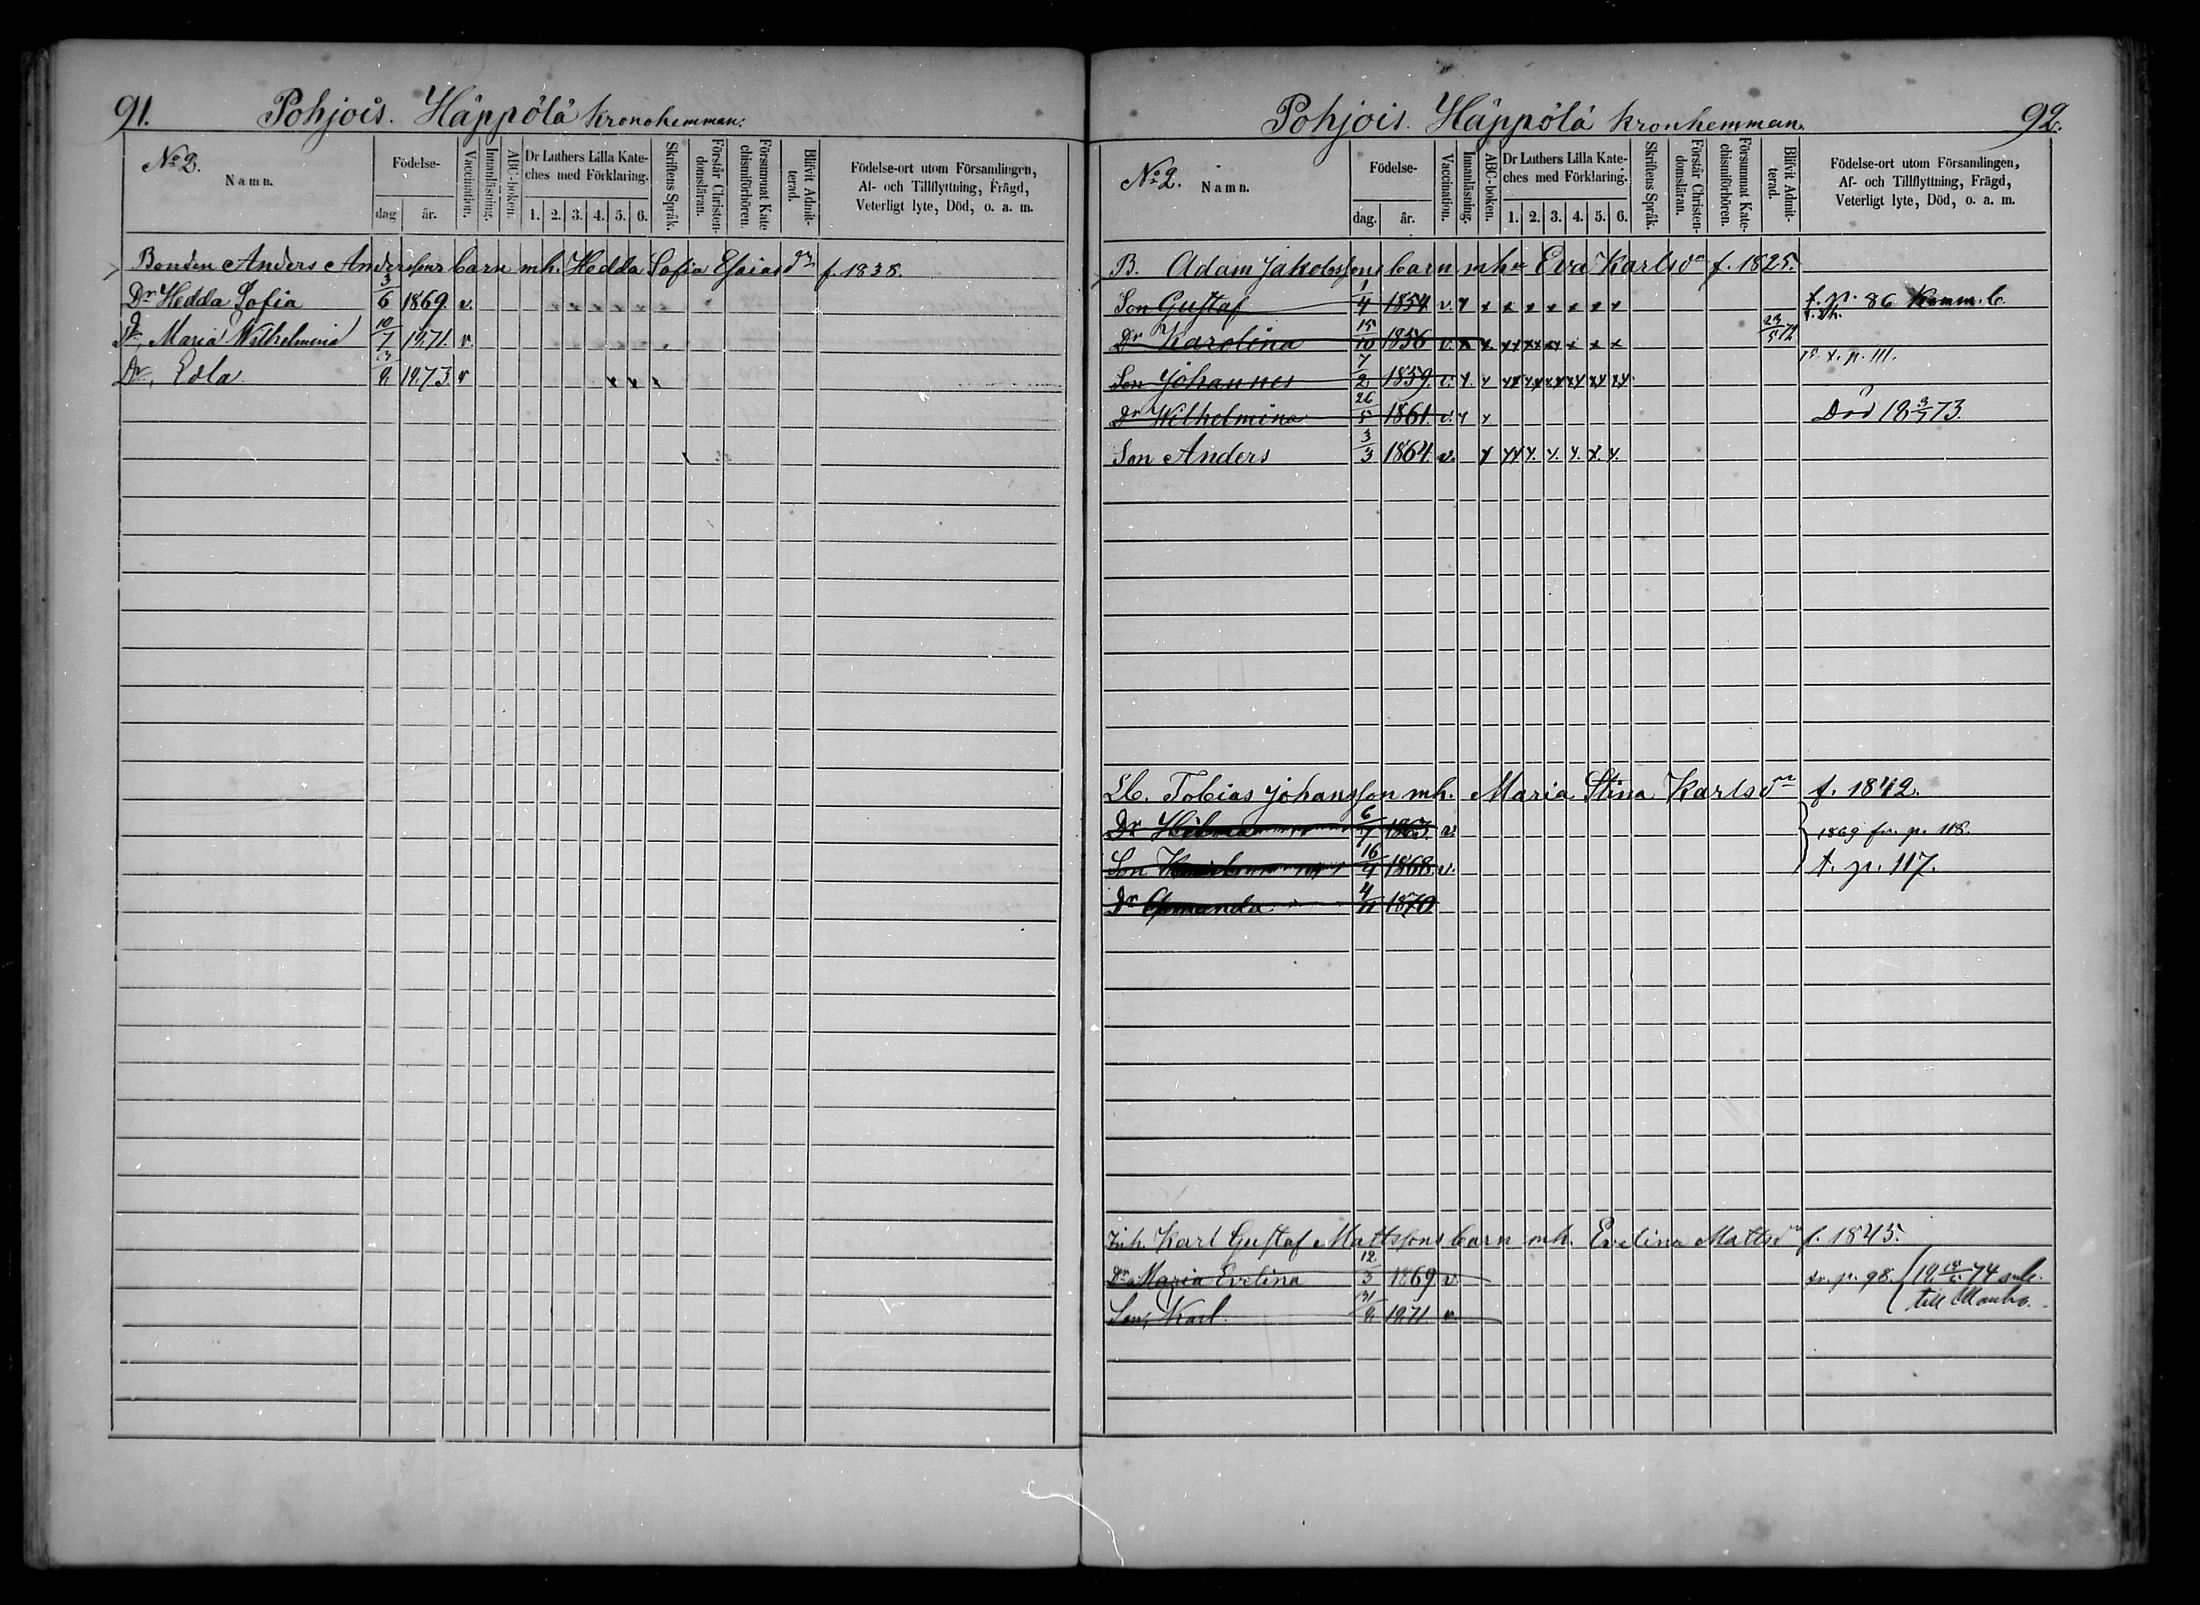 91. Pohjois. Häppölä kronohemman.
No 2.
Namn.
Födelse-
dag år.
Vaccination.
Innanläsning.
ABC-boken.
Dr Luthers Lilla Kate-
ches med Förklaring.
1. 2. 3. 4. 5. 6.
Skriftens Språk.
Förstår Christen-
domsläran.
Försummat Kate
chismiförhören.
Blifvit Admit-
terad.
Födelse-ort utom Församlingen,
Af- och Tillflyttning, Frägd,
Veterligt lyte, Död, o. a. m.
Bonden Anders Anderssons barn mh. Hedda Sofia Esaiasdr f. 1838.
Dr Hedda Sofia 3/6 1869 v. x x x x x
Dr, Maria Wilhelmina 10/7 1871. v. x x x x
Dr, Edla 3/9 1873. v x x x
Pohjois. Häppölä kronhemman. 92.
No 2. Namn.
Födelse-
dag. år.
Vaccination.
Innanläsning.
ABC-boken.
Dr Luthers Lilla Kate-
ches med Förklaring.
1. 2. 3. 4. 5. 6.
Skriftens Språk.
Förstår Christen-
domsläran.
Försummat Kate-
chismiförhören.
Blifvit Admit-
terad.
Födelse-ort utom Församlingen,
Af- och Tillflyttning, Frägd,
Veterligt lyte, Död, o. a. m.
B. Adam Jakobssons barn mh Eva Karlsdr f. 1825.
Son Gustaf 1/4 1854 v. x x x x x x x x t. p. 86 Komm. b.
Dr Karolina 15/10 1856 v. x x. xx xx xx x x x 23/5 72
Son Johannes 7/2 1859. v. x. x xx xx xx xx xx xx p. 111.
Dr Wilhelmina 26/5 1861. v. x x Död 18 3/7 73.
Son Anders 3/3 1864. v. x xx x. x. x. x. x.
Lb. Tobias Johansson mh. Maria Stina Karlsdr f. 1842.
Dr Hilma 6/7 1863. v. 1869 fr. p. 118.
Son 16/4 1868. v. t. p. 117.
Dr Amanda 4/11 1870
Inh. Karl Gustaf Mattssons barn mh. Evelina Mattsdr f. 1845.
Dr Maria Evelina 12/3 1869 v. p. 98. 74
Son, Karl. 31/ 1871 v. till